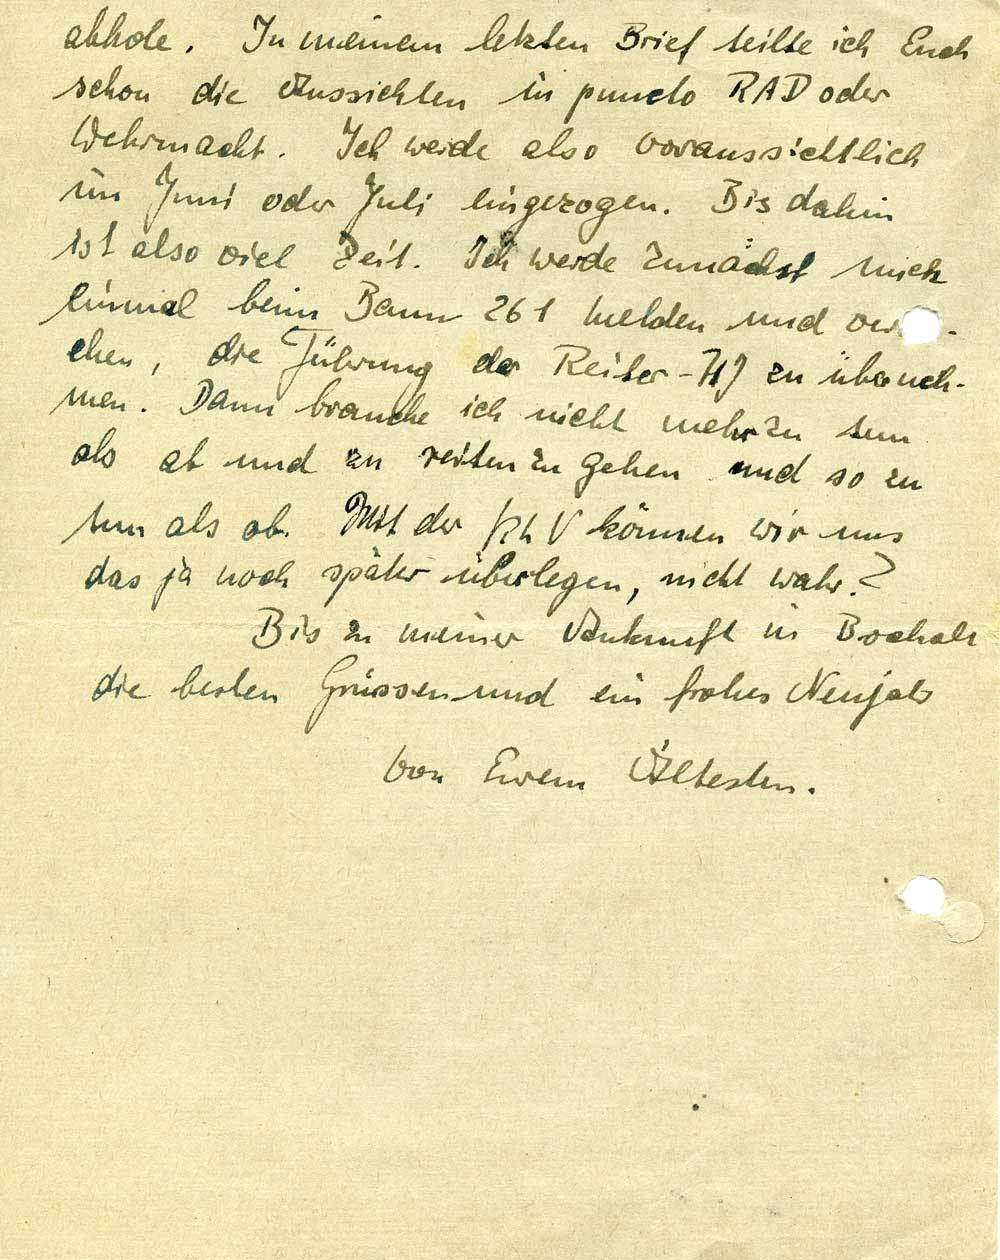 abhole. In meinem letzten Brief teilte ich Euch
schon die Aussichten in puncto RAD oder
Wehrmacht. Ich werde also voraussichtlich
im Juni oder Juli eingezogen. Bis dahin
ist also viel Zeit. Ich werde zunächst mich
einmal beim Bann 261 melden und
chen, die Führung der Reiter-HJ zu überneh-
men. Dann brauche ich nicht mehr zu tun
als ab und zu reiten zu gehen und so zu
tun als ob. Mit der KLV können wir uns
das ja noch später überlegen, nicht wahr?
Bis zu meiner Ankunft in Bocholt
die besten Grüssen und ein frohes Neujahr
von Eurem Ältesten.